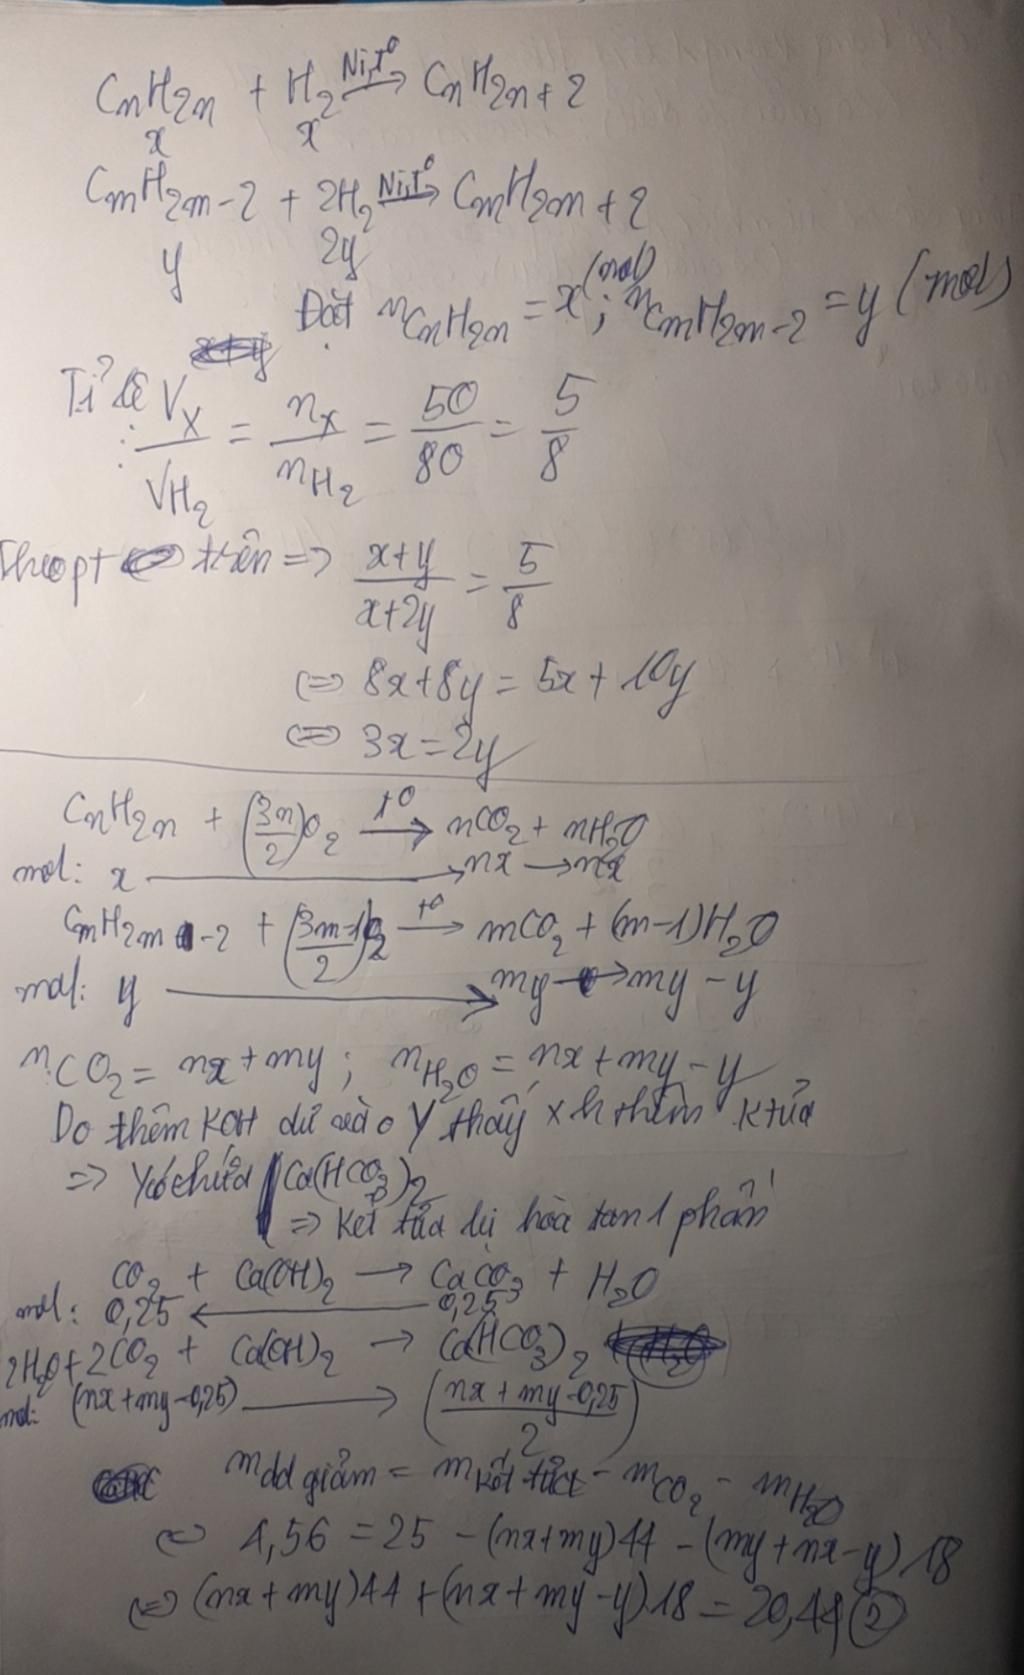 CnH2n + H2 Ni,t° → CnH2n+2
x x
CmH2m-2 + 2H2 Ni,t° → CmH2m+2
y 2y
Đặt nCnH2n = x (mol); nCmH2m-2 = y (mol)
Tỉ lệ: VX/VH2 = nX/nH2 = 50/80 = 5/8
Theo pt trên => (x+y)/(x+2y) = 5/8
<=> 8x+8y = 5x+10y
<=> 3x=2y
CnH2n + (3n/2)O2 t° → nCO2 + nH2O
mol: x → nx → nx
CmH2m-2 + ((3m-1)/2)O2 t° → mCO2 + (m-1)H2O
mol: y → my → my-y
nCO2 = nx+my; nH2O = nx+my-y
Do thêm KOH dư vào Y thấy xh thêm ktủa
=> Y có chứa Ca(HCO3)2
=> Kết tủa bị hòa tan 1 phần
CO2 + Ca(OH)2 → CaCO3 + H2O
mol: 0,25 ← 0,25
2H2O+2CO2 + Ca(OH)2 → Ca(HCO3)2
mol: (nx+my-0,25) → ((nx+my-0,25)/2)
mdd giảm = mkết tủa - mCO2 - mH2O
<=> 4,56 = 25 - (nx+my)44 - (my+nx-y)18
<=> (nx+my)44 + (nx+my-y)18 = 20,44 (2)